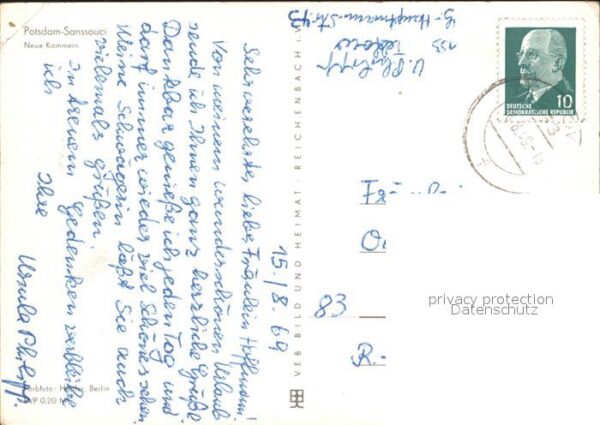 Potsdam-Sanssouci
Neue Kammern
15./8. 69
Sehr verehrtes, liebes Fräulein Hoffmann!
Von meinem wunderschönen Urlaub
sende ich Ihnen ganz herzliche Grüße.
Dankbar genieße ich jeden Tag und
darf immer wieder viel Schönes sehen.
Meine Schwägerin läßt Sie auch
vielmals grüßen.
In treuem Gedenken verbleibe
ich
Ihre
Ursula Philipp.
Farbfoto: Herder, Berlin
EVP 0,20 M
VEB BILD UND HEIMAT · REICHENBACH I. V.
U. Philipp
153 Teltow
G.-Hauptmann-Str. 43
DEUTSCHE
DEMOKRATISCHE REPUBLIK
10
83
R.-
privacy protection
Datenschutz